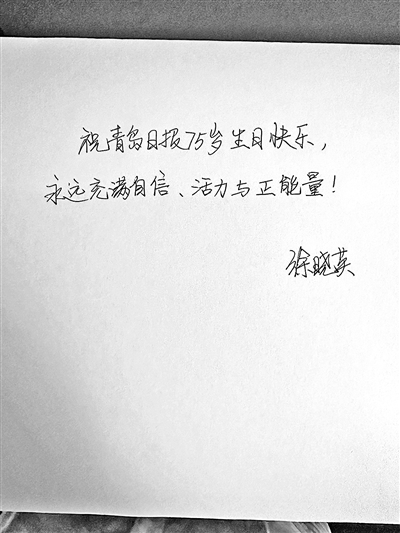 祝青岛日报75岁生日快乐，
永远充满自信、活力与正能量！
徐晓英